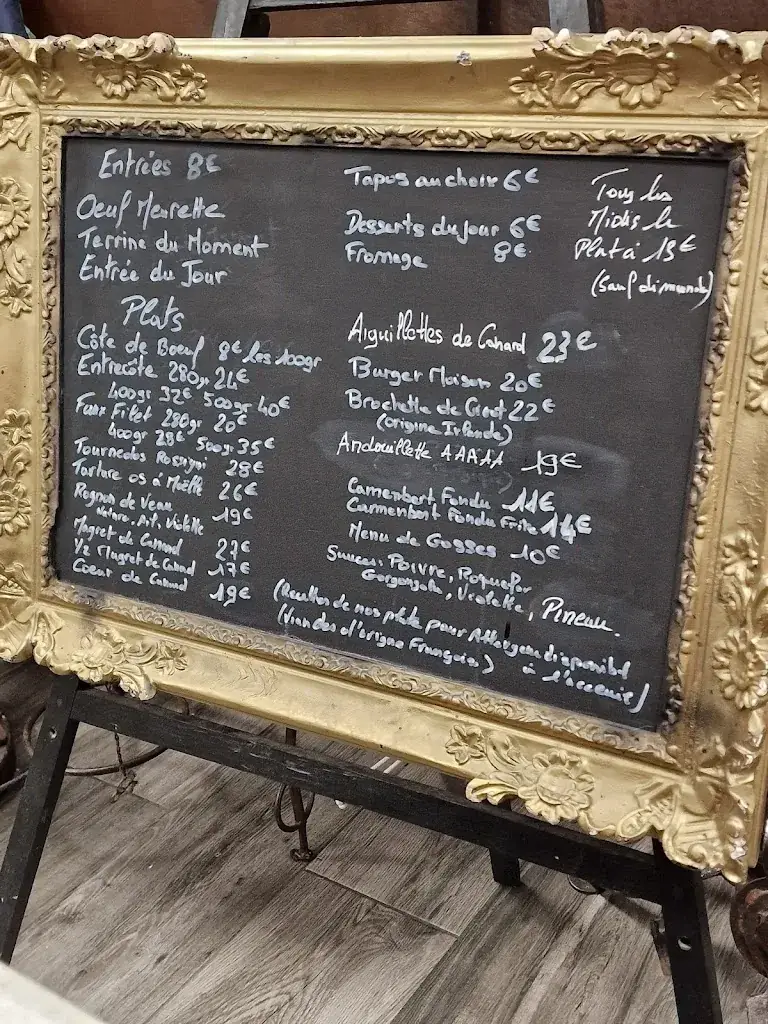 Entrées 8€
Oeuf Meurette
Terrine du Moment
Entrée du Jour
Plats
Côte de Boeuf 8€ les 100gr
Entrecôte 280gr 24€
400gr 32€ 500gr 40€
Faux Filet 280gr 20€
400gr 28€ 500gr 35€
Tournedos Rossini 28€
Tartare os à Moëlle 26€
Rognon de Veau 19€
Nature, A.P, Violette
Magret de Canard 27€
1/2 Magret de Canard 17€
Coeur de Canard 19€
Tapas au choix 6€
Desserts du jour 6€
Fromage 8€
Aiguillettes de Canard 23€
Burger Maison 20€
Brochette de Gigot 22€
(origine Irlande)
Andouillette AAAAA 19€
Camembert Fondu 11€
Camembert Fondu Frite 14€
Menu de Gosses 10€
Sauces: Poivre, Roquefor
Gorgonzola, Violette, Pineau.
(de nos plats pour Allergen disponibl
à l'acceuis)
(Viandes d'origine Française)
Tous les
Midis le
Plat à 15€
(Sauf dimanche)